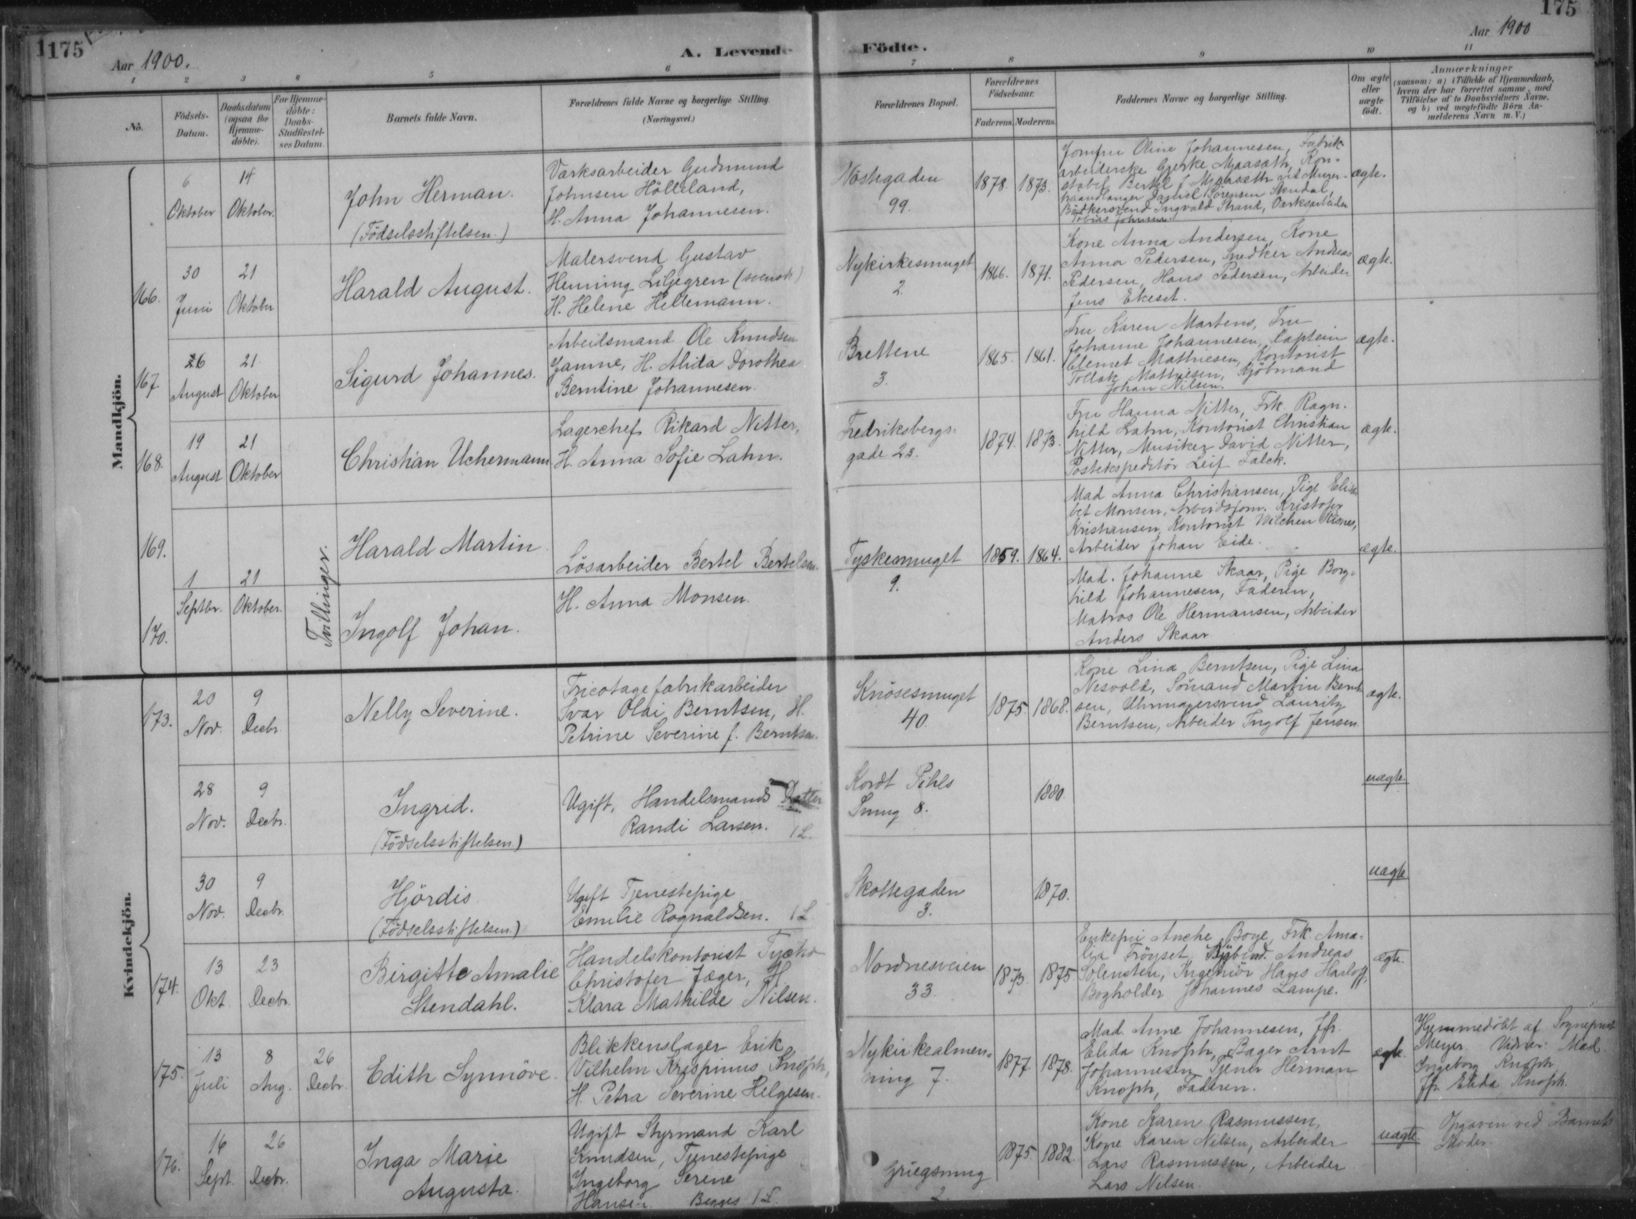 175
Aar 1900.
A. Levende Födte.
Aar 1900
175
1 2 3 4 5 6 7 8 9 10 11
No.
Födsels-
Datum.
Daabsdatum
(ogsaa for
Hjemme-
döbte).
For Hjemme-
döbte:
Daabs-
Stadfæstel-
ses Datum
Barnets fulde Navn.
Forældrenes fulde Navne og borgerlige Stilling
(Næringsvei.)
Forældrenes Bopæl.
Forældrenes
Födselsaar.
Faderens. Moderens.
Faddernes Navne og borgerlige Stilling.
Om ægte
eller
uægte
födt.
Anmærkninger
(saasom: a) i Tilfælde af Hjemmedaab,
hvem der har forrettet samme, med
Tilföielse af to Daabsvidners Navne,
og b) ved uægtefödte Börn An-
melderens Navn m. V.)
Mandkjön.
6
Oktober
14
Oktober.
John Herman.
(Födselsstiftelsen.)
Værksarbeider Gudmund
Johnsen Hölleland,
H. Anna Johannesen.
Nöstegaden
99.
1878. 1873.
Jomfru Oline Johannesen, Fabrik-
arbeiderske Gjerke Maasæth, Kon-
stabel Bertel J. Maasæth ved Murer-
haandlanger Daniel Sörensen Stendal,
Bödkersvend Ingvald Strand, Værksarbeider
Tobias Johnsen.
ægte.
166.
30
Juni
21
Oktober
Harald August.
Malersvend Gustav
Henning Liljegren (svensk)
H. Helene Hellemann.
Nykirkesmuget
2.
1866. 1871.
Kone Anna Andersen, Kone
Anna Pedersen, Snedker Andreas
Pedersen, Hans Pedersen, Arbeider
Jens Ekeset.
ægte.
167.
26
August
21
Oktober
Sigurd Johannes.
Arbeidsmand Ole Knudsen
Jamne, H. Alida Dorothea
Berntine Johannesen.
Brettene
3.
1865. 1861.
Fru Karen Martens, Fru
Johanne Johannesen, Captein
Clemet Mathiesen, Kontorist
Tollak Mathiesen, Kjöbmand
Johan Nilsen.
ægte.
168.
19
August
21
Oktober
Christian Uchermann
Lagerchef Rikard Nitter,
H. Anna Sofie Lahn.
Fredriksbergs-
gade 23.
1874. 1873.
Fru Hanna Nitter, Frk. Ragn-
hild Lahn, Kontorist Christian
Nitter, Musiker David Nitter,
Postekspeditör Leif Falck.
ægte.
169.
Harald Martin
1
Septbr.
21
Oktober.
Tvillinger.
Lösarbeider Bertel Bertelsen.
H. Anna Monsen.
Tyskesmuget
9.
1859. 1864.
Mad Anna Christiansen, Pige Elisa-
bet Monsen, Arbeidsform. Kristofer
Kristiansen, Kontorist Wilchen Risnes,
Arbeider Johan Eide.
ægte.
170.
Ingolf Johan.
Mad. Johanne Skaar, Pige Borg-
hild Johannesen, Faderen,
Matros Ole Hermansen, Arbeider
Anders Skaar
Kvindekjön.
173.
20
Nov.
9
Decbr
Nelly Severine.
Tricotagefabrikarbeider
Ivar Olai Berntsen, H.
Petrine Severine f. Berntsen.
Knösesmuget
40.
1875 1868.
Kone Lina Berntsen, Pige Lina
Nesvold, Sömand Martin Bernt-
sen, Uhrmagersvend Lauritz
Berntsen, Arbeider Ingolf Jensen
ægte.
28
Nov.
9
Decbr.
Ingrid.
(Födselsstiftelsen.)
Ugift, Handelsmands Datter
Randi Larsen. 1 L.
Kordt Pihls
Smug 8.
1880
uægte
30
Nov.
9
Decbr.
Hjördis
(Födselsstiftelsen.)
Ugift Tjenestepige
Emilie Rognaldsen. 1 L
Skottegaden
3.
1870.
uægte
174.
13
Okt.
23
Decbr.
Birgitte Amalie
Stendahl.
Handelskontorist Tycho
Christofer Jæger, H.
Klara Mathilde Nilsen.
Nordnesveien
33.
1873 1875
Enkefru Anche Boye, Frk. Ama-
lia Fröyset, Kjöbmd. Andreas
Solensten, Ingeniör Hans Harloff,
Bogholder Johannes Lampe.
ægte
175.
13
Juli
8
Aug.
26
Decbr.
Edith Synnöve.
Blikkenslager Erik
Vilhelm Krispinus Knoph,
H. Petra Severine Helgesen.
Nykirkealmen-
ning 7.
1877. 1878.
Mad Anne Johannesen, Jfr.
Elida Knoph, Bager Arnt
Johannesen, Tjener Herman
Knoph, Faderen.
ægte.
Hjemmedöbt af Sogneprest
Meyer. Vidner: Mad.
Ingeborg Knoph
Jfr. Elida Knoph.
176.
16
Sept.
26
Decbr.
Inga Marie
Augusta.
Ugift Styrmand Karl
Knudsen, Tjenestepige
Ingeborg Serene
Hansen. Begges 1 L.
Griegsmug
2
1875 1882
Kone Karen Rasmussen,
Kone Karen Nilsen, Arbeider
Lars Rasmussen, Arbeider
Lars Nilsen.
uægte
Opgaven ved Barnets
Moder.